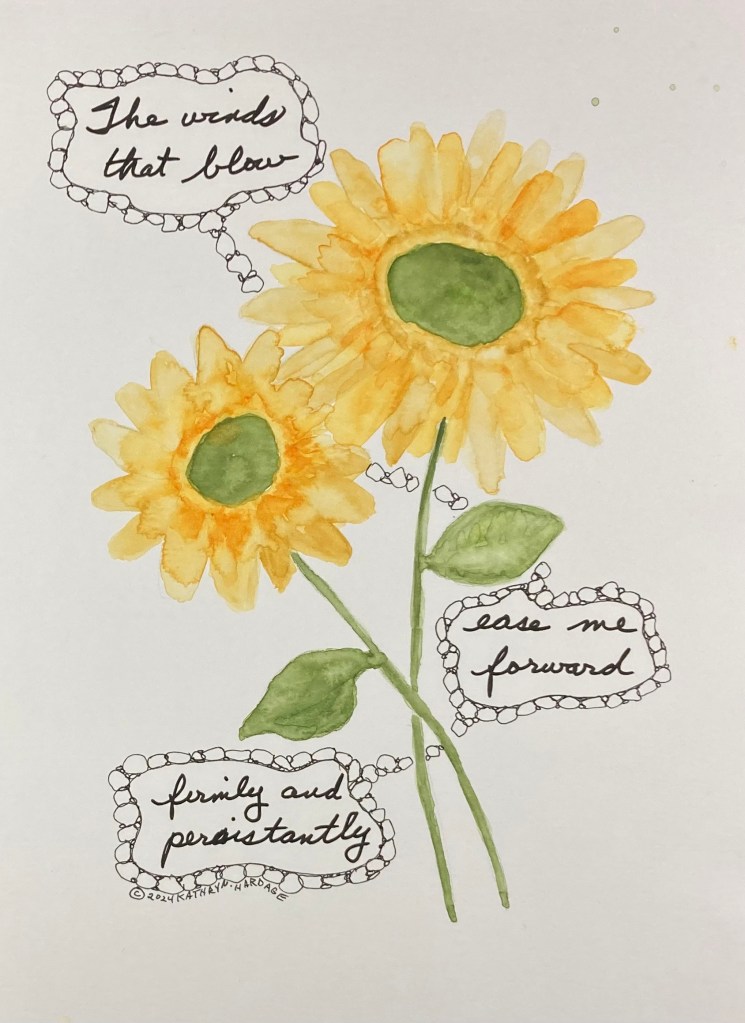 The winds
that blow
ease me
forward
firmly and
persistantly
© 2024 KATHRYN·HARDAGE